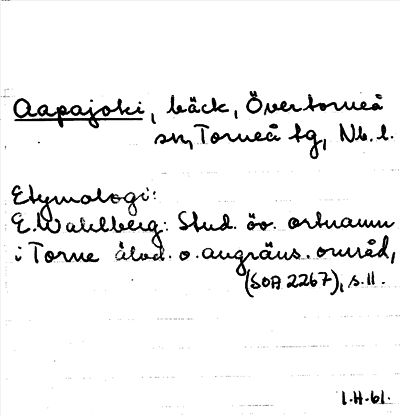 Aapajoki, bäck, Övertorneå
sn, Torneå tg, Nb. l.
Etymologi:
E. Wahlberg: Stud. öv. ortnamn
i Torne älvd. o. angräns. områd,
(SOA 2267), s. 11.
1.H-61.